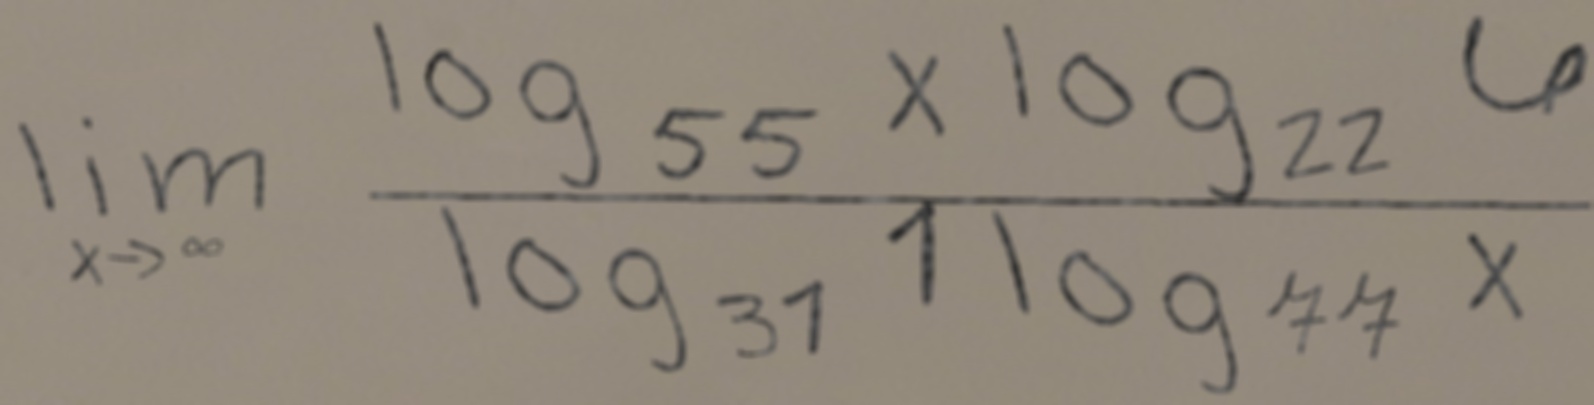 lim x→∞ log₅₅ x log₂₂ 6
log₃₁ 1 log₇₇ x